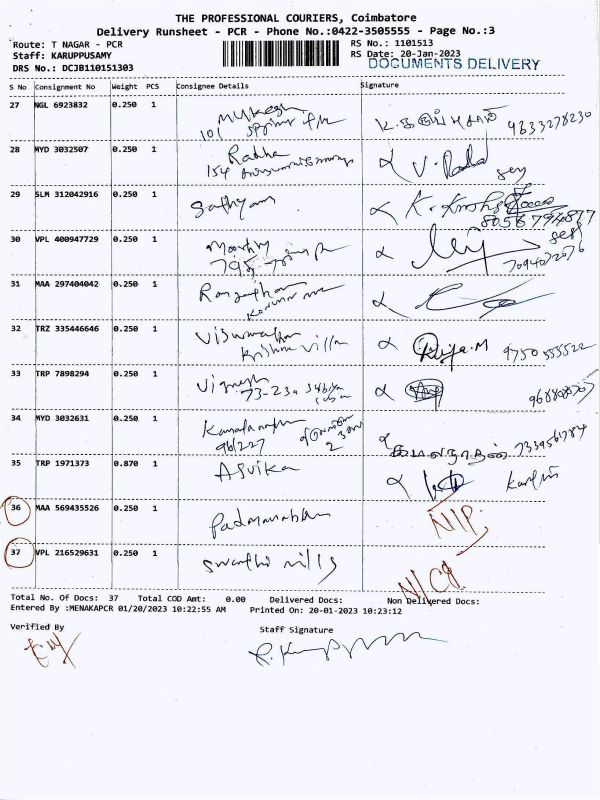 THE PROFESSIONAL COURIERS, Coimbatore
Delivery Runsheet - PCR - Phone No.:0422-3505555 - Page No.:3
Route: T NAGAR - PCR RS No.: 1101513
Staff: KARUPPUSAMY RS Date: 20-Jan-2023
DRS No.: DCJB110151303 DOCUMENTS DELIVERY
S No Consignment No Weight PCS Consignee Details Signature
27 NGL 6923832 0.250 1 Mukesh
101
28 MYD 3032507 0.250 1 Radha V. Radha
154
29 SLM 312042916 0.250 1 Sathyam
8056794877
30 VPL 400947729 0.250 1 Moorthy
795 7094072676
31 MAA 297404042 0.250 1
32 TRZ 335446646 0.250 1 Viswanathan
Krishna Villa 9750555522
33 TRP 7898294 0.250 1 Vignesh
73-23a
34 MYD 3032631 0.250 1 Kamalanathan
96/227 2 கமலநாதன் 7339561784
35 TRP 1971373 0.870 1 Asvika
36 MAA 569435526 0.250 1 Padmanabhan N/P
37 VPL 216529631 0.250 1 Swathi mills
Total No. Of Docs: 37 Total COD Amt: 0.00 Delivered Docs: Non Delivered Docs:
Entered By :MENAKAPCR 01/20/2023 10:22:55 AM Printed On: 20-01-2023 10:23:12
Verified By Staff Signature